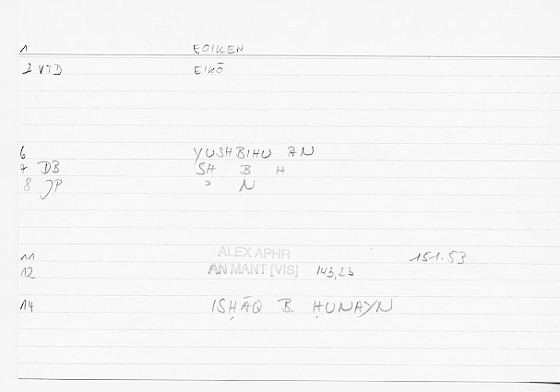 1 EOIKEN
2 VTD EIKŌ
6 YUSHBIHU AN
7 DB SH B H
8 JP ɔ N
11 ALEX APHR 151.53
12 AN MANT [VIS] 143,23
14 ISḤĀQ B. ḤUNAYN